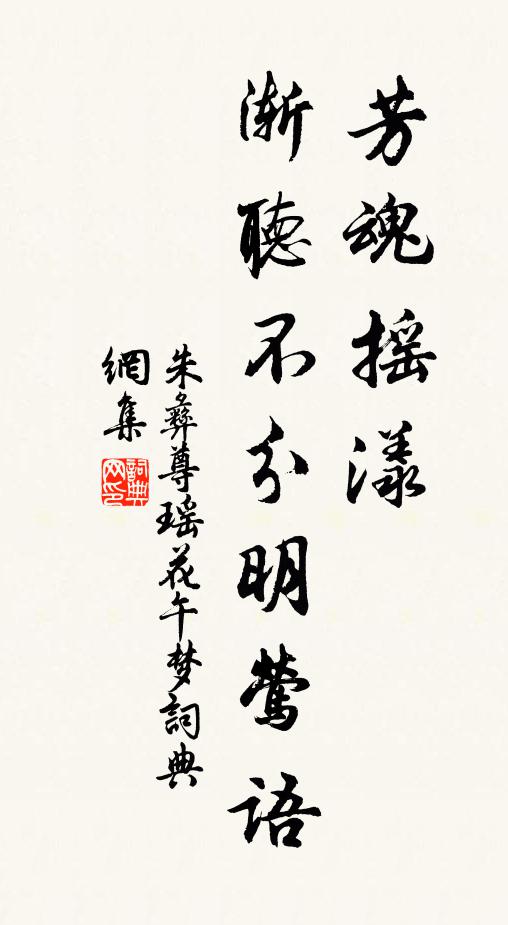 芳魂摇漾
渐聽不分明莺語
朱彝尊瑶花午梦詞典
網集
詞典
网印